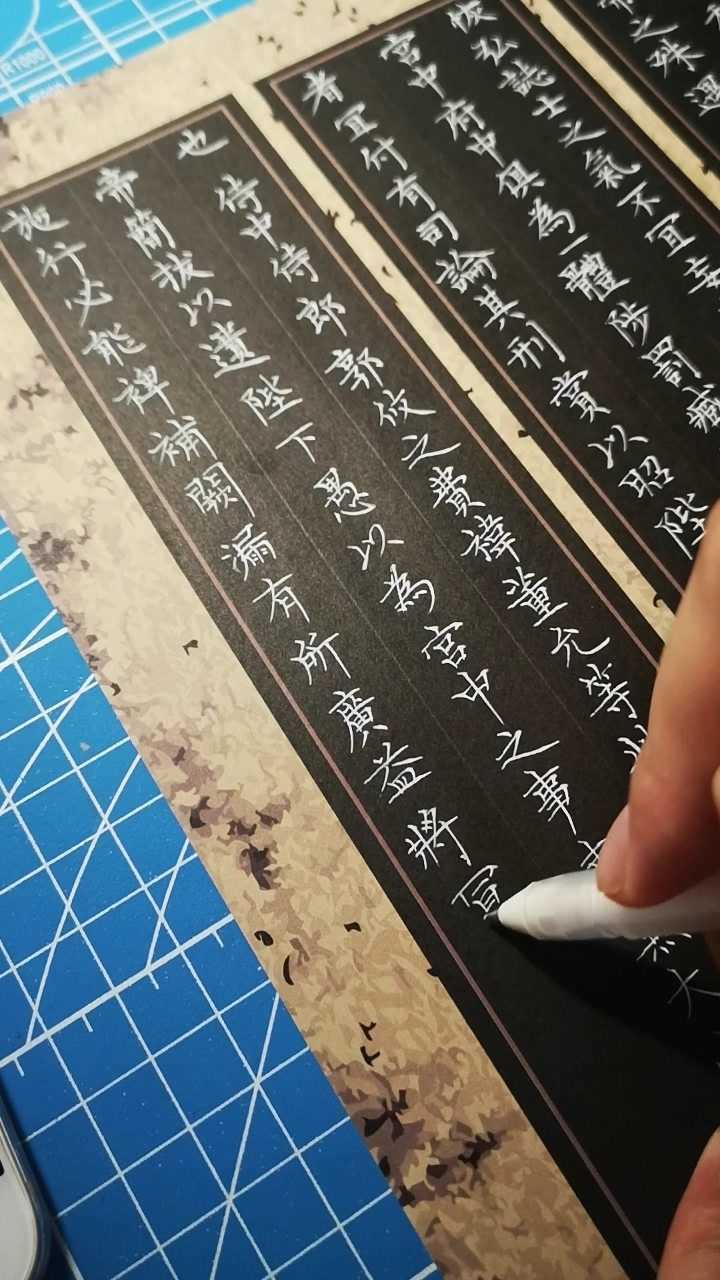 之殊遇
恢弘誌士之氣不宜妄
宮中府中俱為一體陟罰臧
者宜付有司論其刑賞以昭陛
也侍中侍郎郭攸之費禕董允等
帝簡拔以遺陛下愚以為宮中之事
施行必能裨補闕漏有所廣益將
R1000